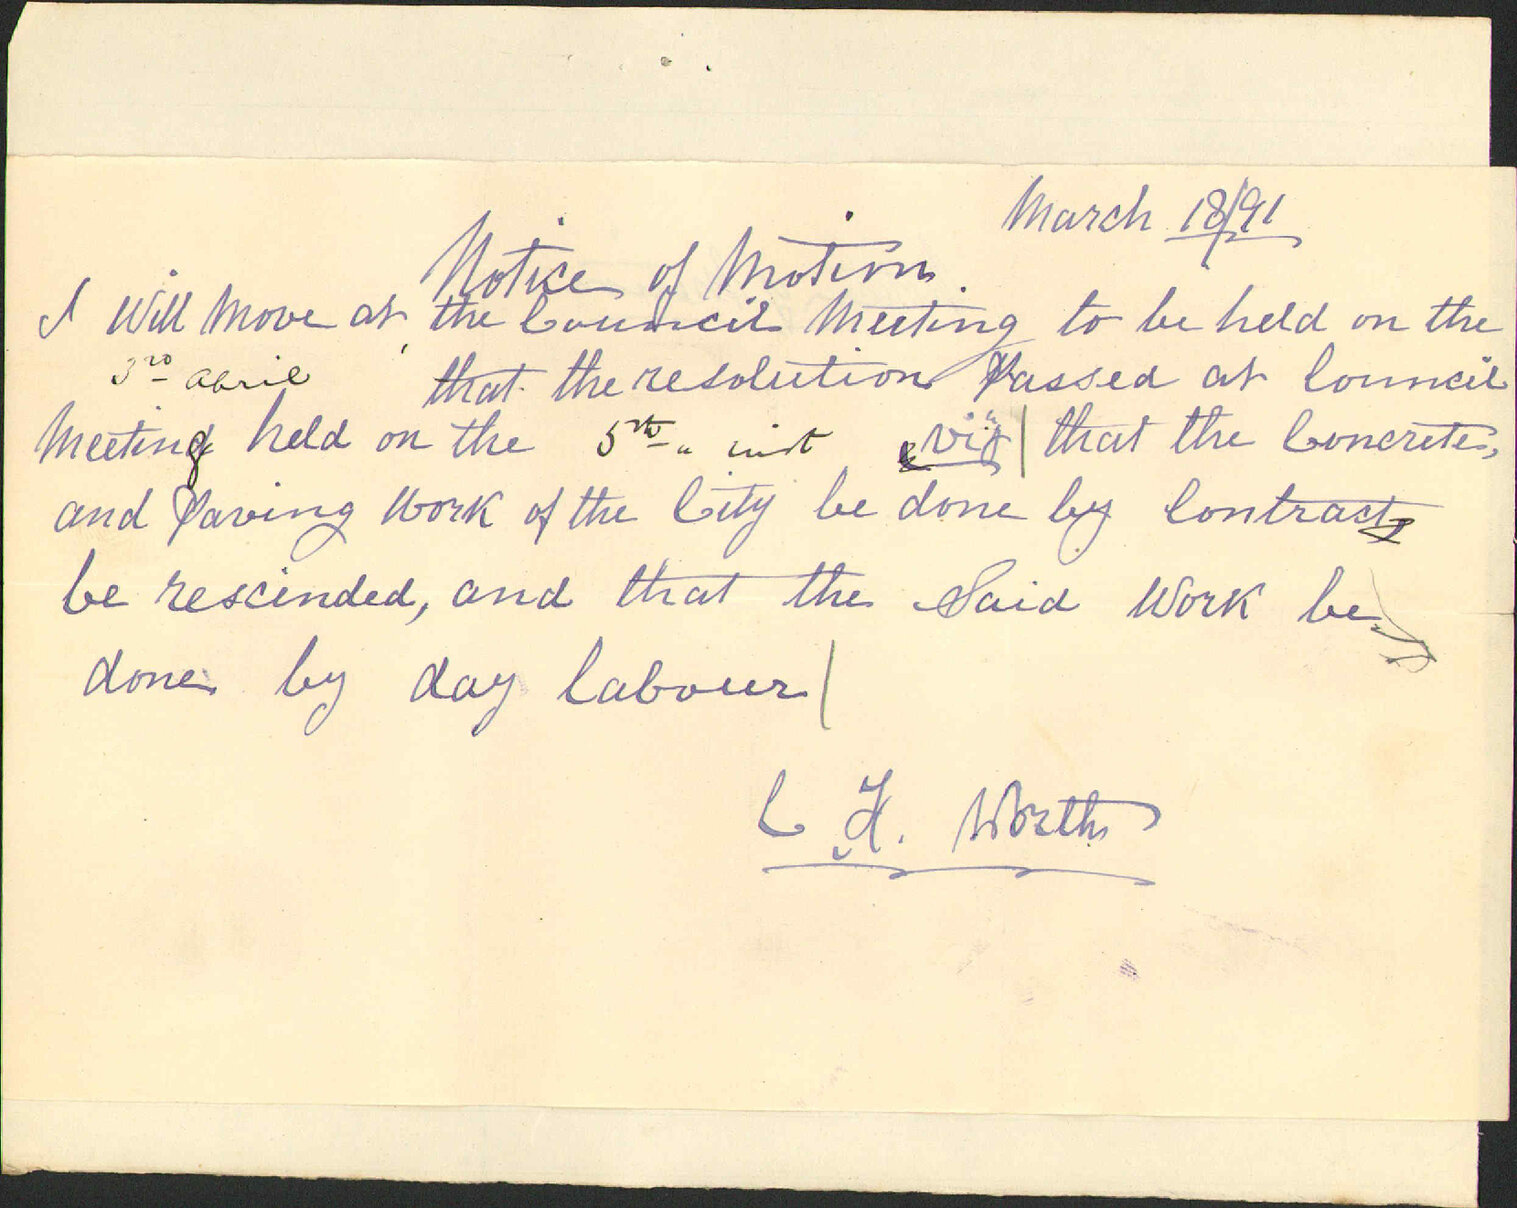 March 18/91
Notice of Motion
I Will Move at the Council Meeting to be held on the
3rd April that the resolution Passed at Council
Meeting held on the 5th inst viz that the Concrete,
and Paving Work of the City be done by Contract
be rescinded, and that the Said Work be
done by day labour
C F. Worth